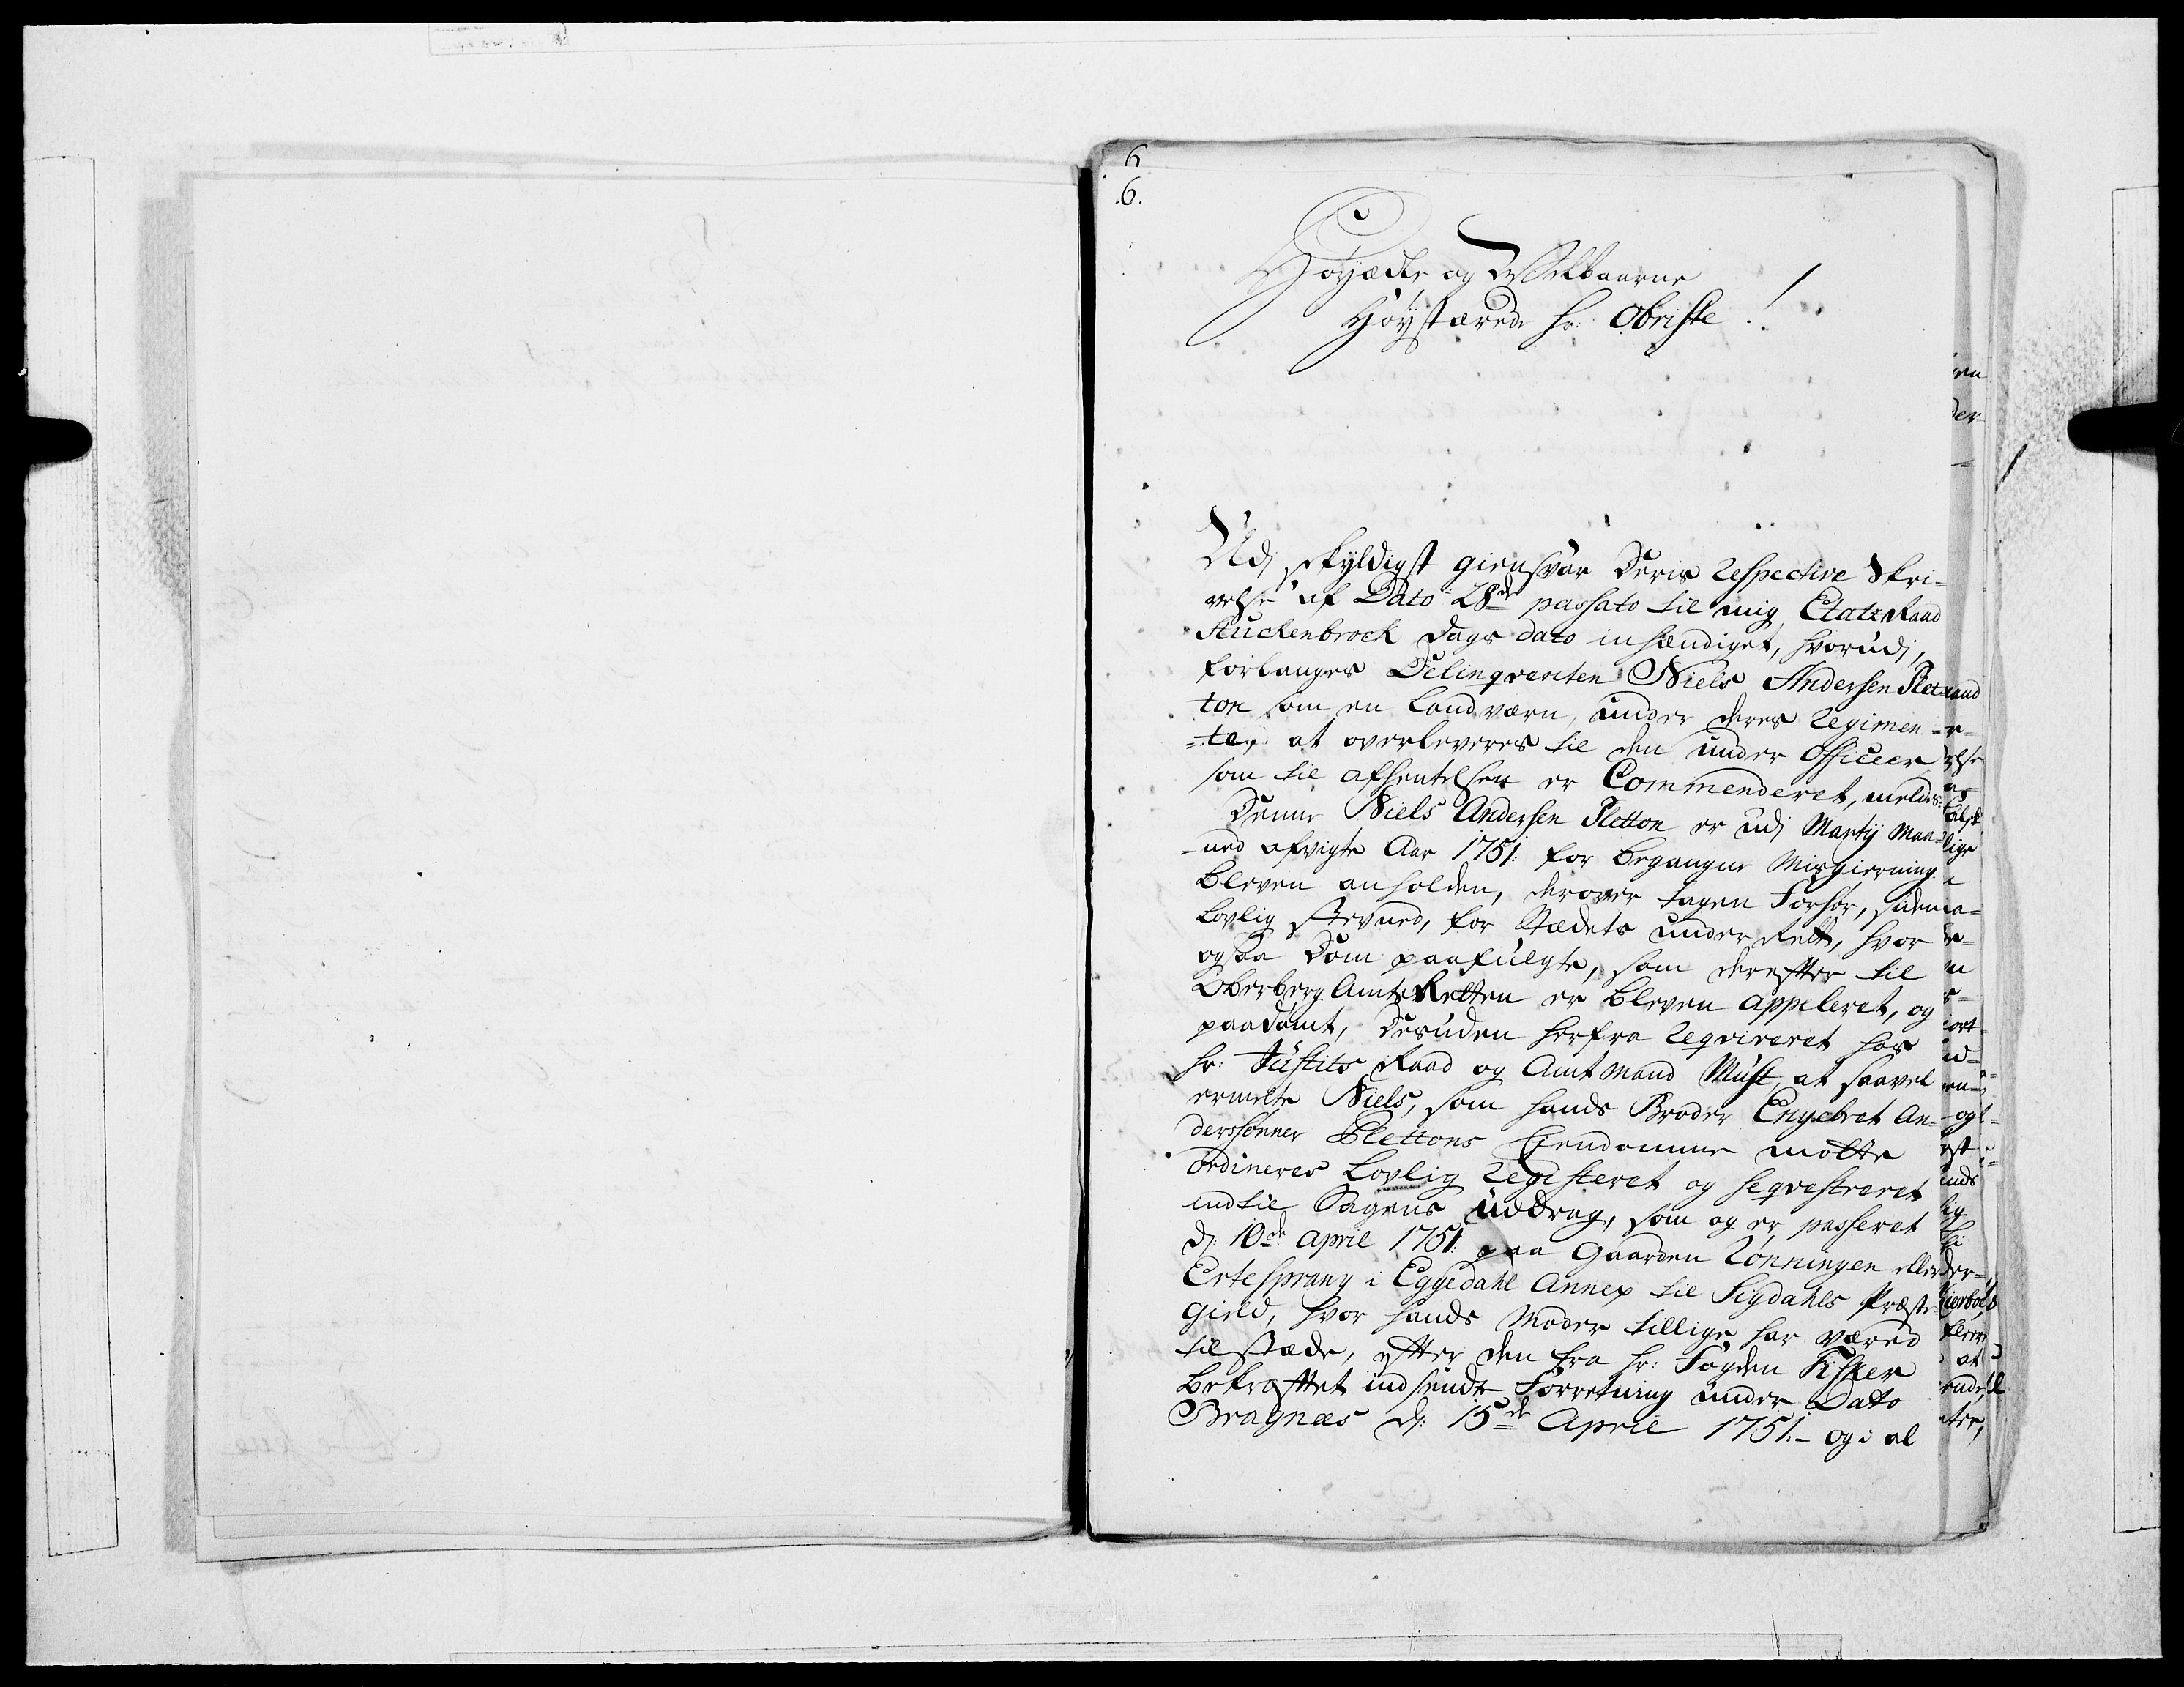 6
6.
Høyædle og Welbaarne
Høystærede Hr: Obriste!
Udj skyldigst giensvar Deris Respective Skri-
velse af Dato 28de passato til mig, Etatz Raad
Stuckenbrock dags dato inhændiget, hvorudj,
forlanges Delinqventen Niels Andersen Slet-
ton som en Landværn, under deres Regimen-
=te, at overleveres til den under Officeer
som til afhentelsen er Commenderet, meldes:
Denne Niels Andersen Sletton er udj Martij Maa-
ned afvigte Aar 1751: for begangne Misgierning
bleven anholden, derover tagen Forhør, siden
Lovlig stevned, for Stædets under Rett, hvor
ogsaa Dom paafulgte, som derefter til
Oberberg Amts Retten er bleven appeleret, og
paadømt, desuden herfra Reqvireret hos
Hr: Justits Raad og Amtmand Must, at saavel
ermelte Niels, som hands Broder Engebret An-
derssønner Slettons Eiendomme motte
ordineres Lovlig Registeret og seqvestreret
indtil Sagens uddrag, som og er passeret
d: 10de April 1751: paa Gaarden Rønningen eller
Ertesprang i Eggedahl Annex til Sigdahls Præste
Gield, hvor hands Moder tillige har væred
tilstæde, efter den fra Hr: Fogden Fisker
bekræftet indsendte Forretning under Dato
Bragnæs d: 15de April 1751.- og i al